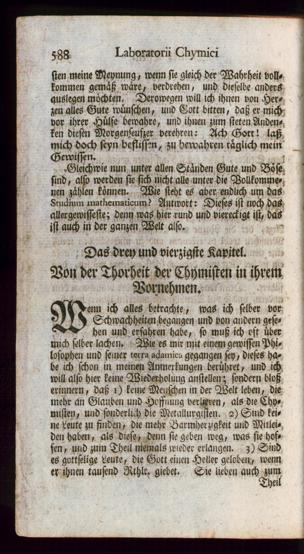 588 Laboratorii Chymici
sten meine Meynung, wenn sie gleich der Wahrheit voll-
kommen gemäß wäre, verdrehen, und dieselbe anders
auslegen möchten. Derowegen will ich ihnen von Her-
zen alles Gute wünschen, und Gott bitten, daß er mich
vor ihrer Hülfe bewahre, und ihnen zum steten Anden-
ken diesen Morgenseufzer verehren: Ach Gott! laß
mich doch seyn beflissen, zu bewahren täglich mein
Gewissen.
Gleichwie nun unter allen Ständen Gute und Böse
sind, also werden sie sich nicht alle unter die Vollkomme-
nen zählen können. Wie steht es aber endlich um das
Studium mathematicum? Antwort: Dieses ist noch das
allergewisseste; denn was hier rund und viereckigt ist, das
ist auch in der ganzen Welt also.
Das drey und vierzigste Kapitel.
Von der Thorheit der Chymisten in ihrem
Vornehmen.
Wenn ich alles betrachte, was ich selber vor
Schwachheiten begangen und von andern gese-
hen und erfahren habe, so muß ich oft über
mich selber lachen. Wie es mir mit einem gewissen Phi-
losophen und seiner terra adamica gegangen sey, dieses ha-
be ich schon in meinen Anmerkungen berühret, und ich
will also hier keine Wiederholung anstellen; sondern bloß
erinnern, daß 1) keine Menschen in der Welt leben, die
mehr an Glauben und Hoffnung verlieren, als die Chy-
misten, und sonderlich die Metallurgisten. 2) Sind kei-
ne Leute zu finden, die mehr Barmherzigkeit und Mitlei-
den haben, als diese, denn sie geben weg, was sie hof-
fen, und zum Theil niemals wieder erlangen. 3) Sind
es gottselige Leute, die Gott einen Heller geloben, wenn
er ihnen tausend Rthlr. giebet. Sie lieben auch zum
Theil